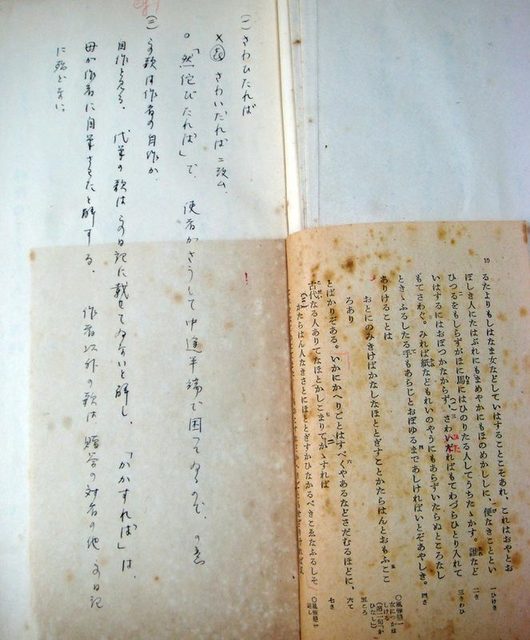 10
るたよりもしはなま女などしていはすることこそあれ、これはおやとお
ぼしき人にたはぶれにもまめやかにもほのめかしゝに、便なきことゝい
ひつるをもしらずがほに馬にはひのりたる人してうちたゝかす。誰など
いはするにはおぼつかなからず、さわいたればもてわづらひとり入れて
もてさわぐ。みれば紙などもれいのやうにもあらずいたらぬところなし
ときゝふるしたる手もあらじとおぼゆるまであしければいとぞあやしき。
ありけることは
おとにのみきけばかなしなほとゝぎすことかたらはんとおもふこゝ
ろあり
とばかりぞある。いかにかへりごとはすべくやあるなどさだむるほどに、
古代なる人ありてなほとかしこまりてかゝすれば
かたらはん人なきさとにほとゝぎすかひなかるべきこゑなふるしそ
(一) さわひたれば
さわいだれば ニ改ム
○「然侘びたれば」で、使者がさうして中途半端で困つてゐるので、の意
(二) この歌は作者の自作か。
自作と見る。代筆の歌はこの日記に載せてゐないと解し、「かかすれば」は、
母が作者に自筆させたと解する。作者以外の歌は贈答の対者の他この日記
に殆どない